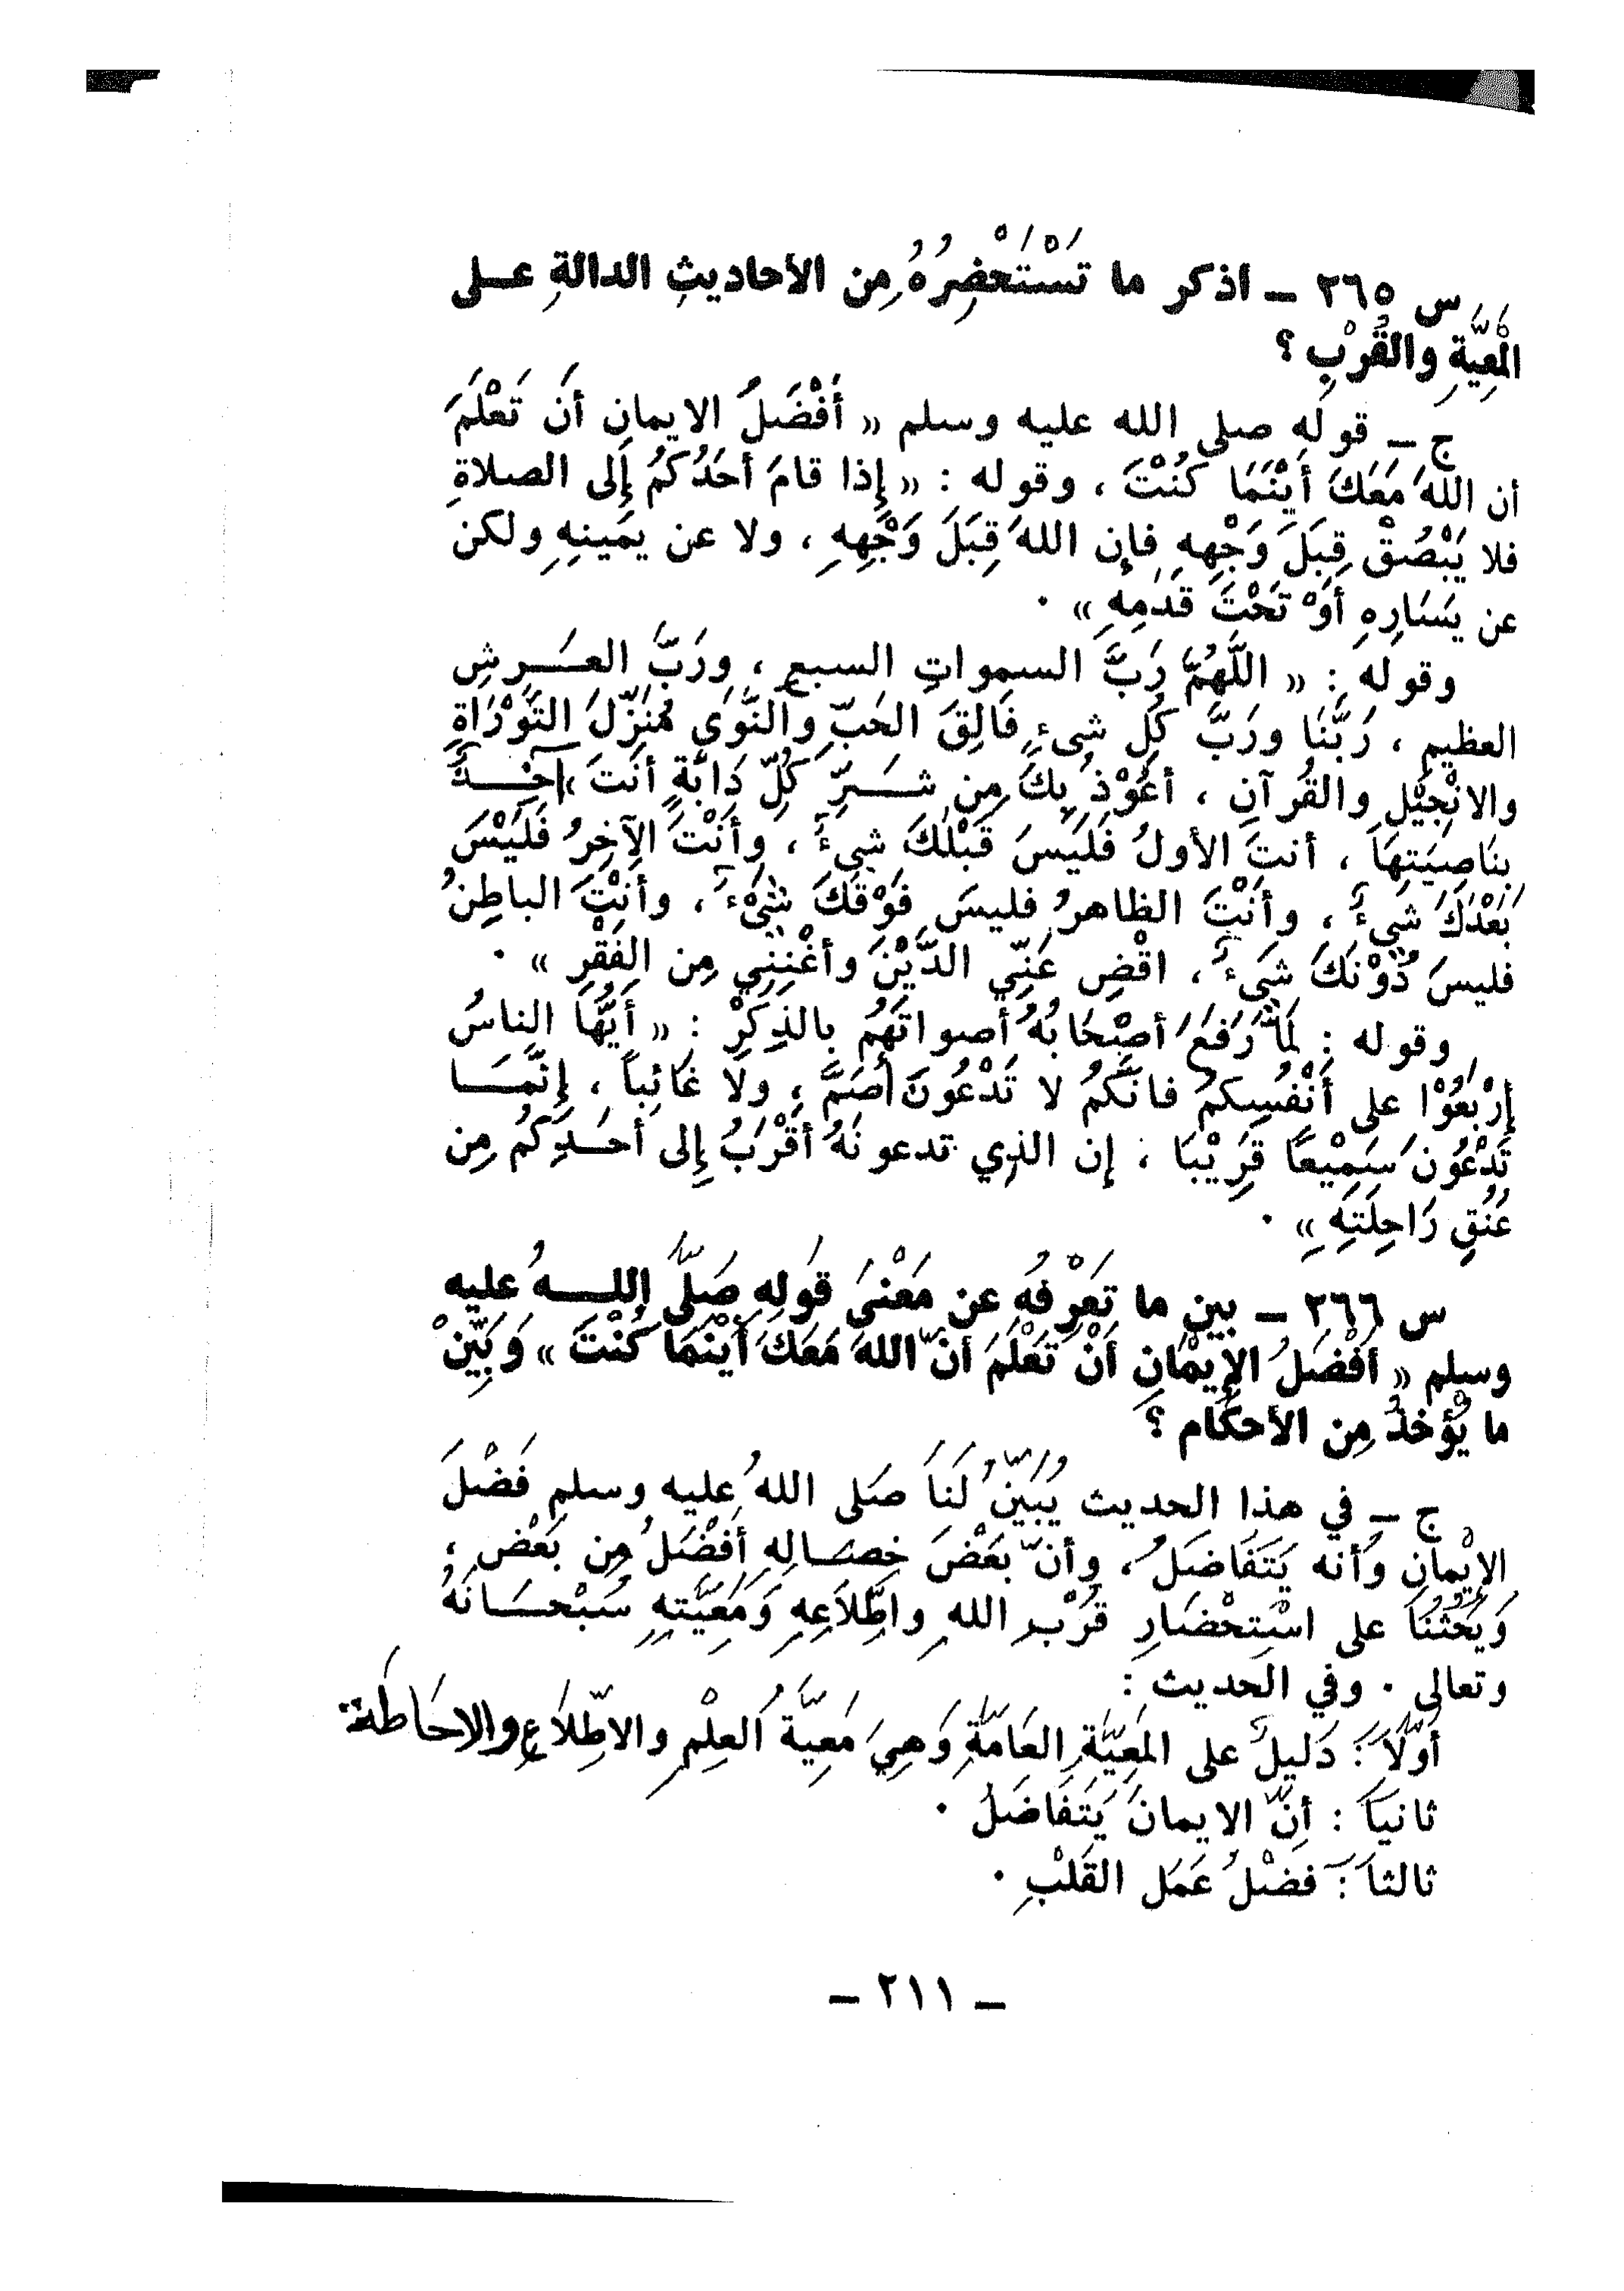 س ٢٦٥ – اذكر ما تَسْتَحْضِرُهُ مِن الأحاديثِ الدالةِ على
المَعِيَّةِ والقُرْبِ ؟
ج – قوله صلى الله عليه وسلم « أَفْضَلُ الايمانِ أَن تَعْلَمَ
أن اللهَ مَعَكَ أَيْنَمَا كُنْتَ ، وقوله : « إِذا قامَ أحَدُكُمْ إِلى الصلاةِ
فلا يَبْصُقْ قِبَلَ وَجْهِهِ فإن اللهَ قِبَلَ وَجْهِهِ ، ولا عن يَمينِهِ ولكن
عن يَسَارِهِ أَوْ تَحْتَ قَدَمِهِ » ٠
وقوله : « اللَّهُمَّ رَبَّ السمواتِ السبعِ ، ورَبَّ العَرشِ
العظيمِ ، رَبَّنَا ورَبَّ كُلِ شيءٍ فَالِقَ الحَبِّ والنَّوَى مُنَزِّلَ التَّوْرَاةِ
والانْجِيْلِ والقُرآنِ ، أعُوْذُ بِكَ مِن شَرِّ كُلِّ دَابَّةٍ أنتَ آخِذٌ
بِنَاصِيَتِهَا ، أنتَ الأولُ فَلَيْسَ قَبْلَكَ شيءٌ ، وأَنْتَ الآخِرُ فَلَيْسَ
بَعْدَكَ شيءٌ ، وأَنْتَ الظاهرُ فليسَ فَوْقَكَ شَيْءٌ ، وأنْتَ الباطِنُ
فليسَ دُوْنَكَ شَيءٌ ، اقْضِ عَنِّي الدَّيْنَ وأَغْنِنِي مِن الفَقْرِ » ٠
وقوله : لَمَّا رَفَعَ أصْحَابُهُ أصواتَهُم بالذِكْرِ : « أَيُّهَا الناسُ
إِرْبَعُوْا على أَنْفُسِكُم فانَّكُمُ لا تَدْعُونَ أَصَمَّ ، ولَا غَائِباً ، إِنَّمَا
تَدْعُونَ سَمِيْعًا قَرِيْبًا ، إن الذي تدعونَهُ أَقْرَبُ إِلى أحَدِكُمْ مِن
عُنُقِ رَاحِلَتِهِ » ٠
س ٢٦٦ – بين ما تَعْرِفُه عن مَعْنىَ قَولِهِ صَلَّى اللهُ عليه
وسلم « أَفْضَلُ الإِيْمَانِ أَنْ تَعْلَمَ أنَّ اللهَ مَعَكَ أَيْنَمَا كُنْتَ » وَبَيِّنْ
ما يُؤْخَذُ مِن الأَحْكَام ؟
ج – في هذا الحديث يُبَيِّنُ لَنَا صَلى اللهُ عليه وسلم فَضْلَ
الإِيْمانِ وَأنه يَتَفَاضَلُ ، وأنَّ بَعْضَ خِصَالِهِ أَفْضَلُ مِن بَعْضٍ ،
وَيَحُثُّنَا على اسْتِحْضَارِ قُرْبِ اللهِ واطِّلَاعِهِ وَمَعِيَّتِهِ سُبْحَانَهُ
وتعالى ٠ وفي الحديث :
أوّلاً : دَليلٌ على المَعِيَّةِ العَامَّةِ وَهِيَ مَعِيَّةُ العِلْمِ والاطِّلَاعِ والاحَاطَة ٠
ثانياً : أنَّ الايمانَ يَتَفَاضَلُ ٠
ثالثاً : فضْلُ عَمَل القَلْبِ ٠
– ٢١١ –